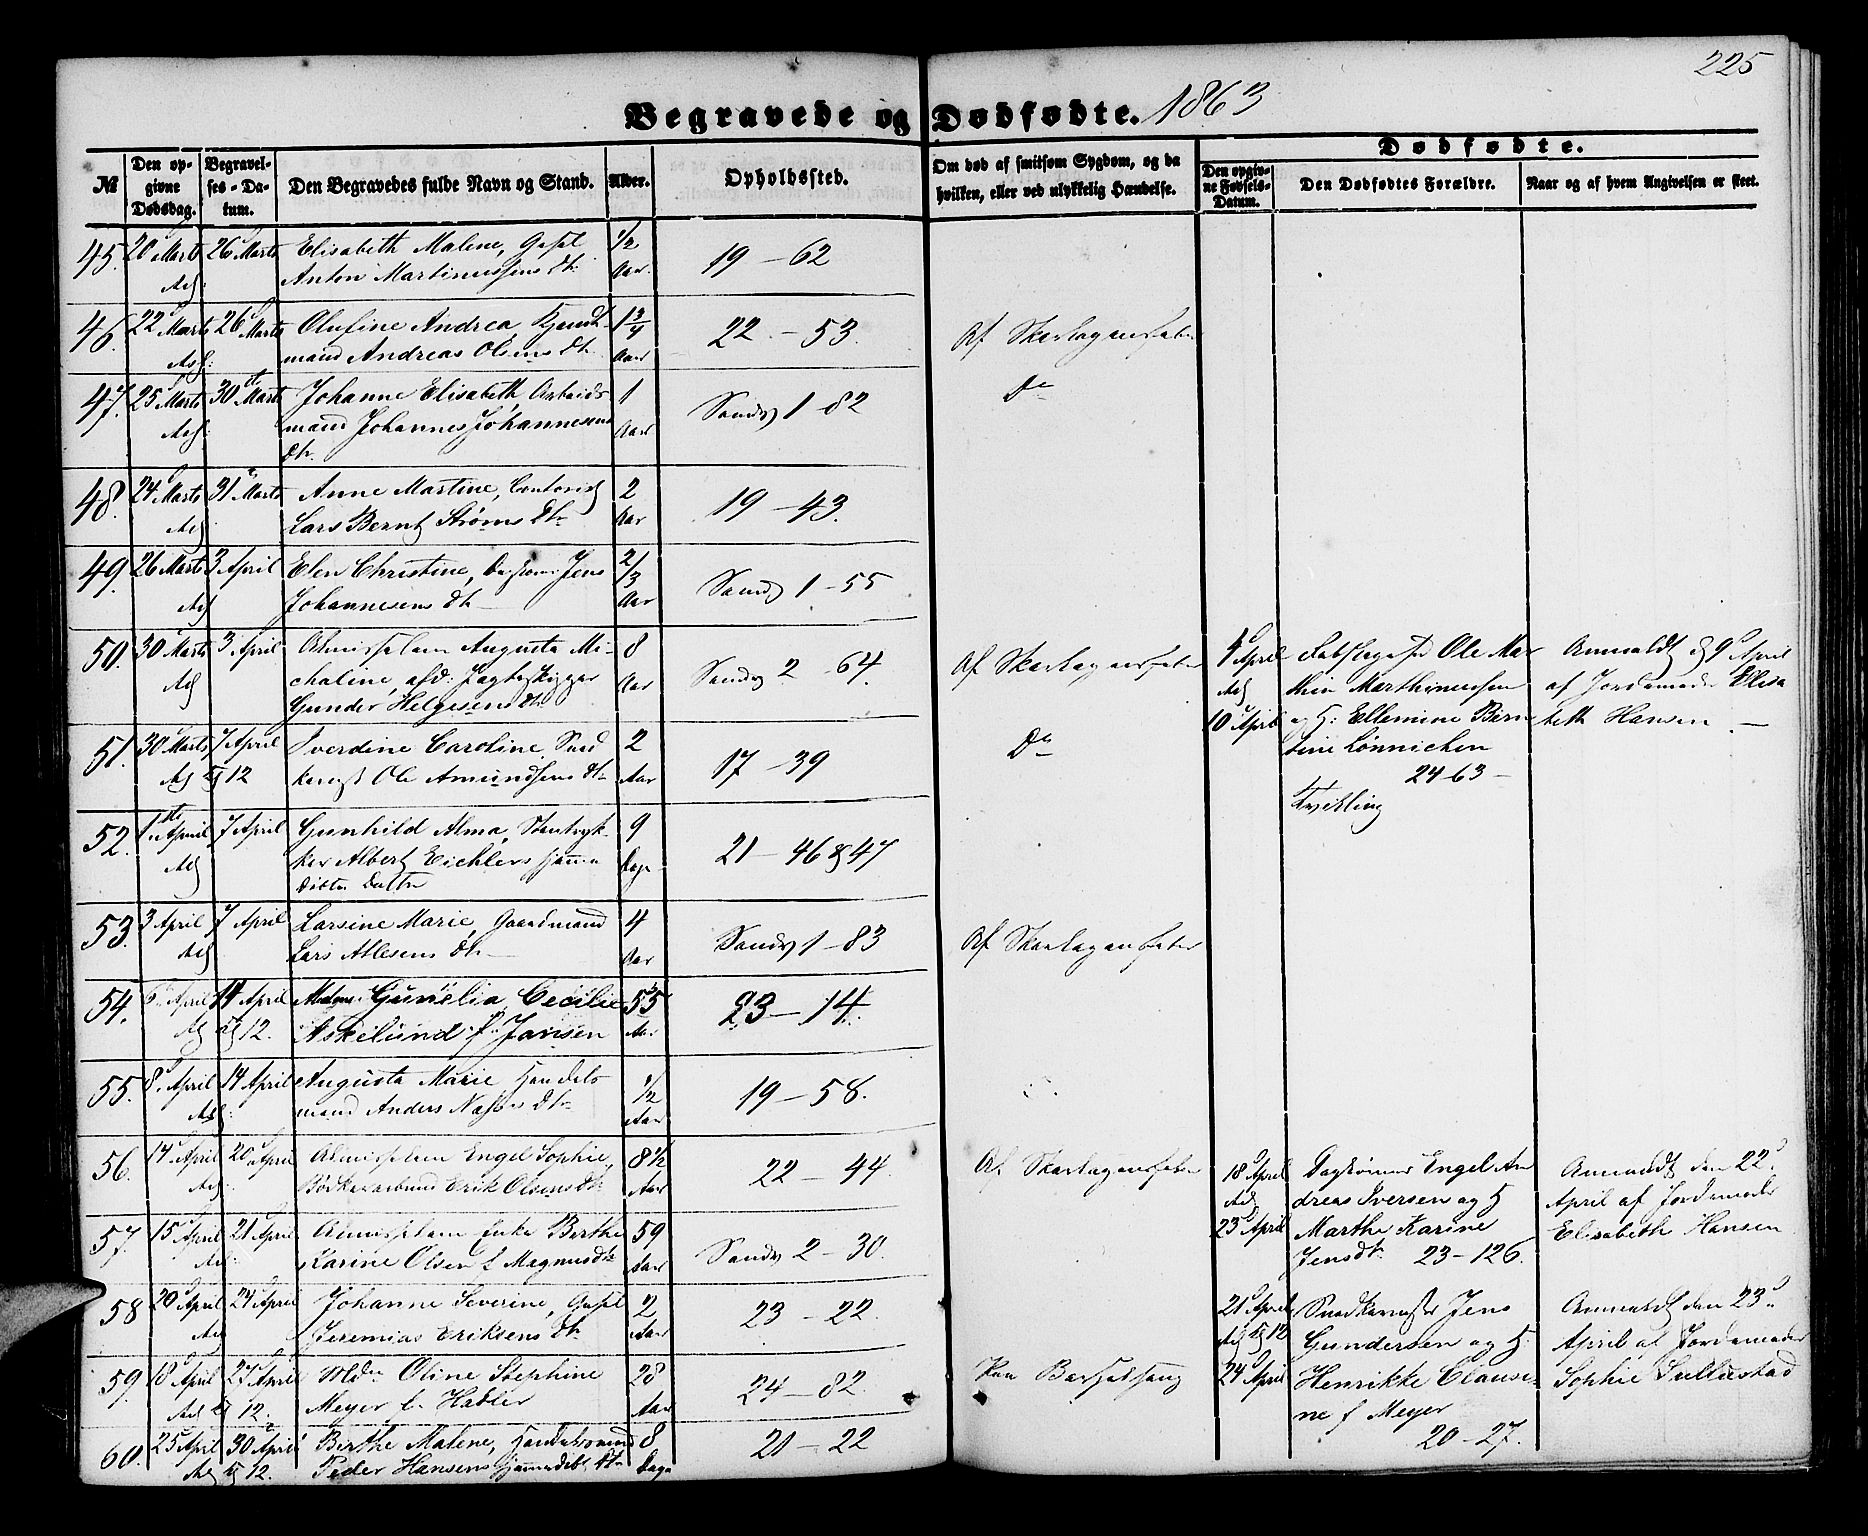 225
Begravede og Dødfødte. 1863
Dødfødte.
№
Den op-
givne
Dødsdag.
Begravel-
ses-Da-
tum.
Den Begravedes fulde Navn og Stand.
Alder.
Opholdssted.
Om død af smitsom Sygdom, og da
hvilken, eller ved ulykkelig Hændelse.
Den opgiv-
ne Fødsels-
Datum.
Den Dødfødtes Forældre.
Naar og af hvem Angivelsen er skeet.
45. 20 Marts 26 Marts Elisabeth Malene, 1/2 19 - 62
Anton Martinussens Dtr. Aar.
46. 22 Marts 26 Marts Olufine Andrea, 1 3/4 22 - 53. Af Skarlagensfeber
mand Andreas Olsens Dtr. Aar
47. 25 Marts 30 Marts Johanne Elisabeth, Arbeids 1 Sandv 1 - 82 Do
mand Johannes Johannesens Aar
Dtr.
48. 24 Marts 31 Marts Anne Martine, Contorist 2 19 - 43.
Lars Bernt Strøms Dtr Aar
49. 26 Marts 3 April Elen Christine, Jens 2/3 Sandv 1 - 55
Johannesens Dtr Aar
50. 30 Marts 3 April Almisselem Augusta Mi- 8 Sandv 2 - 64. Af Skarlagensfeber
chaline, afd: Jagtskipper Aar
Gunder Helgesens Dtr
4 April Ole Mar Anmeldt 9 April
thin Marthinussen af Jordemoder Elisa
10 April og H: Ellemine Bern beth Hansen
tine Lønnichen
24 63
Tvilling
51. 30 Marts 7 April Iverdine Caroline, Sned 2 17 - 39 Do
12 Ole Amundsens Dtr Aar
52. 1 April 7 April Gunhild Alma, Stentryk- 9 21 - 46 & 47
ker Albert Eichlers hjemme Dage
døbte Datter
53. 3 April 7 April Larsine Marie, Gaardmand 4 Sandv 1 - 83 Af Skarlagensfeber
Lars Atlesens Dtr Aar
54. 6 April 14 April Gunelia Cecilie 55 23 - 14.
12. Askelund f. Jansen Aar
55. 8 April 14 April Augusta Marie, Handels 1/2 19 - 58.
mand Anders Dtr Aar
56. 14 April 20 April Almisselem Engel Sophie, 8 1/2 22 - 44 Af Skarlagensfeber
Bødkersvend Erik Olsens Dtr Aar
18 April Engel An Anmeldt den 22
dreas Iversen og H April af Jordemoder
23 April Marthe Karine Elisabeth Hansen
Jensdtr. 23 - 126.
57. 15 April 21 April Almisselem Enke Berthe 59 Sandv 2 - 30.
Karine Olsen f Magnusdtr Aar
58 20 April 24 April Johanne Severine, 2 23 - 22.
Jeremias Eriksens Dtr Aar
21 April Jens Anmeldt den 23
12 Gundersen og H: April af Jordemoder
24 April Henrikke Clausi- Sophie
ne f Meyer
20 - 27.
59. 18 April 27 April Oline Stephine 28 24 - 82. Paa Barselseng
12. Meyer f. Aar
60. 25 April 30 April Birthe Malene, Handelsmand 8 20 - 22
12. Peder Hansens hjemmedøbt Dtr Dage